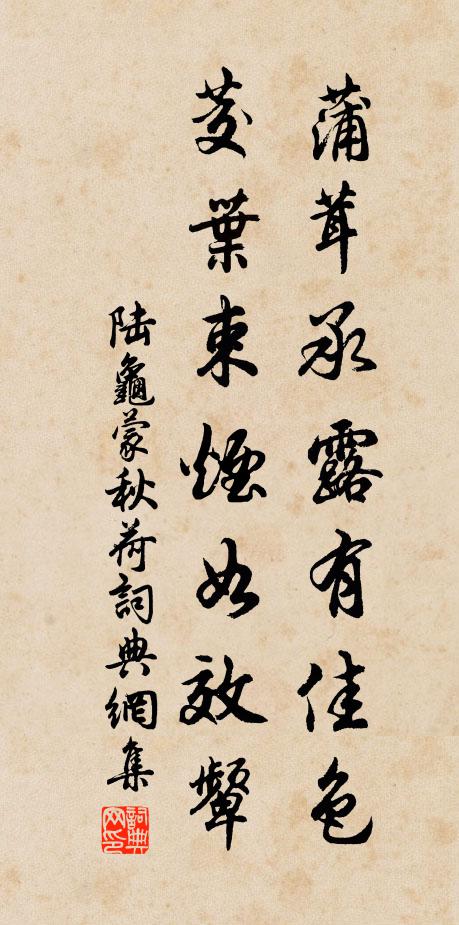 蒲茸承露有佳色
茭葉束煙如效顰
陆龜蒙秋荷詞典網集
詞典网印